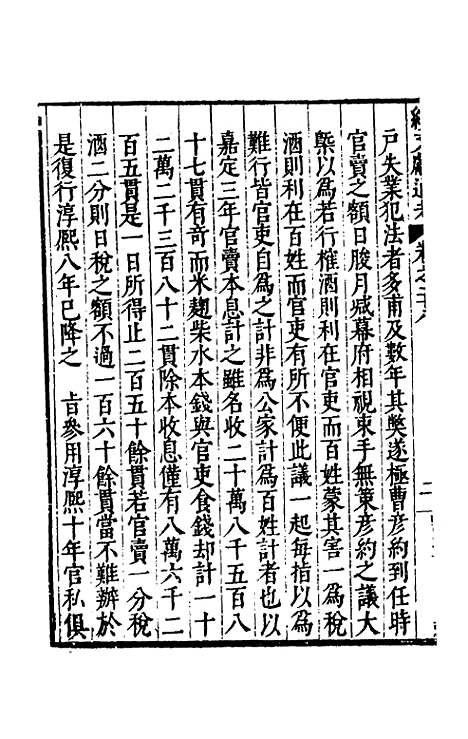 續文獻通考 卷之二十八
戶失業犯法者多甫及數年其獘遂極曹彥約到任時
官賣之額日朘月減幕府相視束手無策彥約之議大
槩以爲若行榷酒則利在官吏而百姓蒙其害一爲稅
酒則利在百姓而官吏有所不便此議一起每指以爲
難行皆官吏自爲之計非爲公家計爲百姓計者也以
嘉定三年官賣本息計之雖名收二十萬八千五百八
十七貫有奇而米麹柴水本錢與官吏食錢却計一十
二萬二千三百八十二貫除本收息僅有八萬六千二
百五貫是一日所得止二百五十餘貫若官賣一分稅
酒二分則日稅之額不過一百六十餘貫當不難辦於
是復行淳熙八年已降之 旨參用淳熙十年官私俱